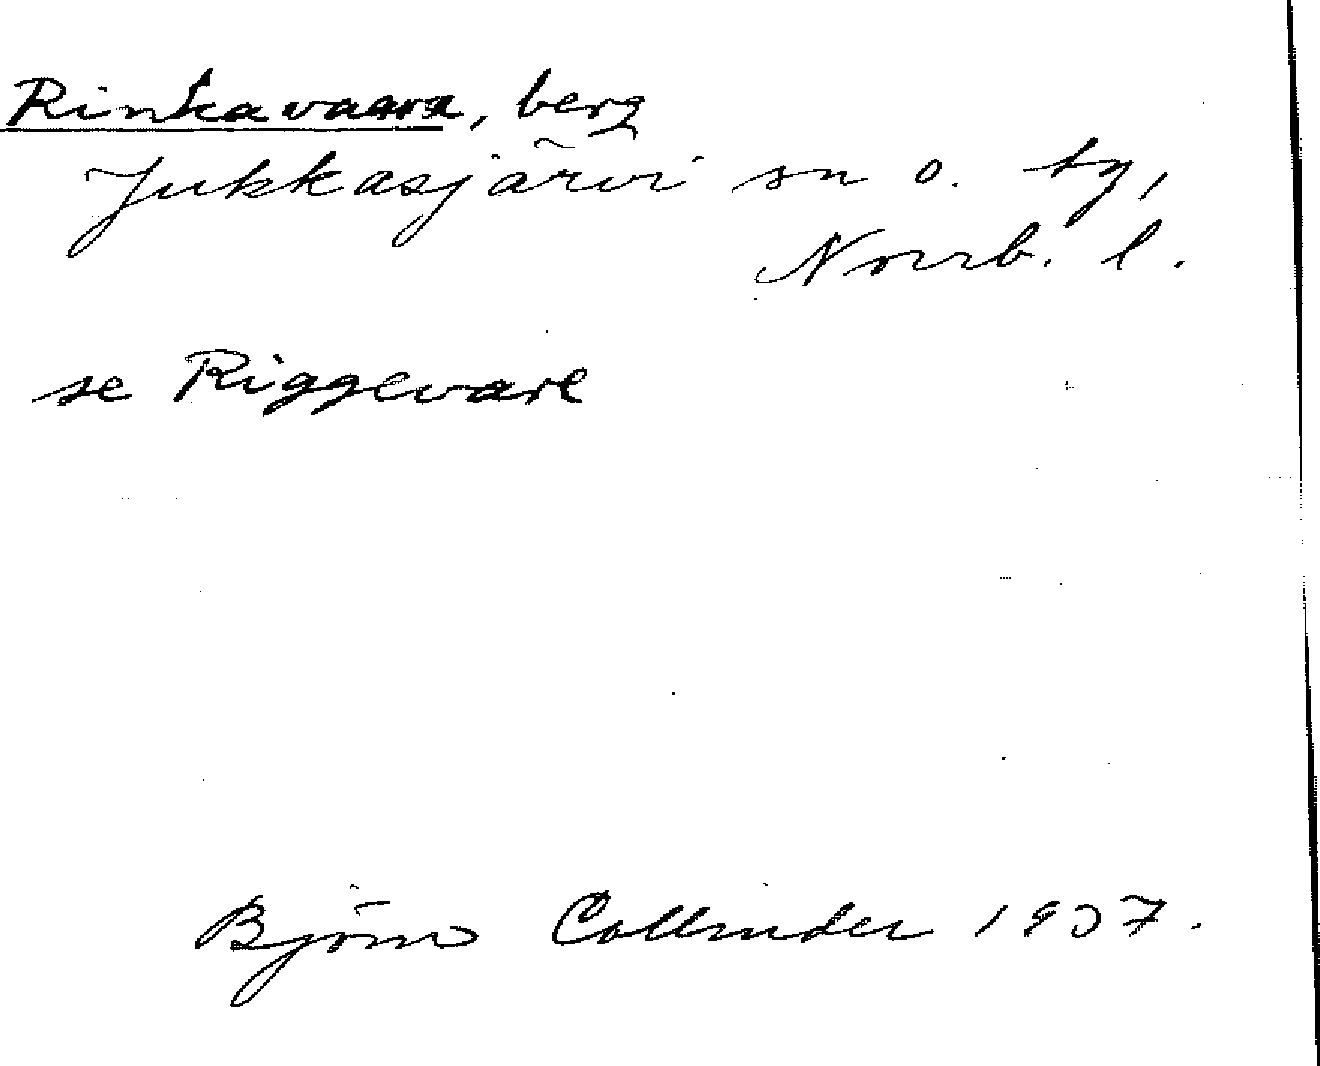 Rinkavaara, berg
Jukkasjärvi sn o. tg,
Norrb. l.
se Riggevare
Björn Collinder 1937.